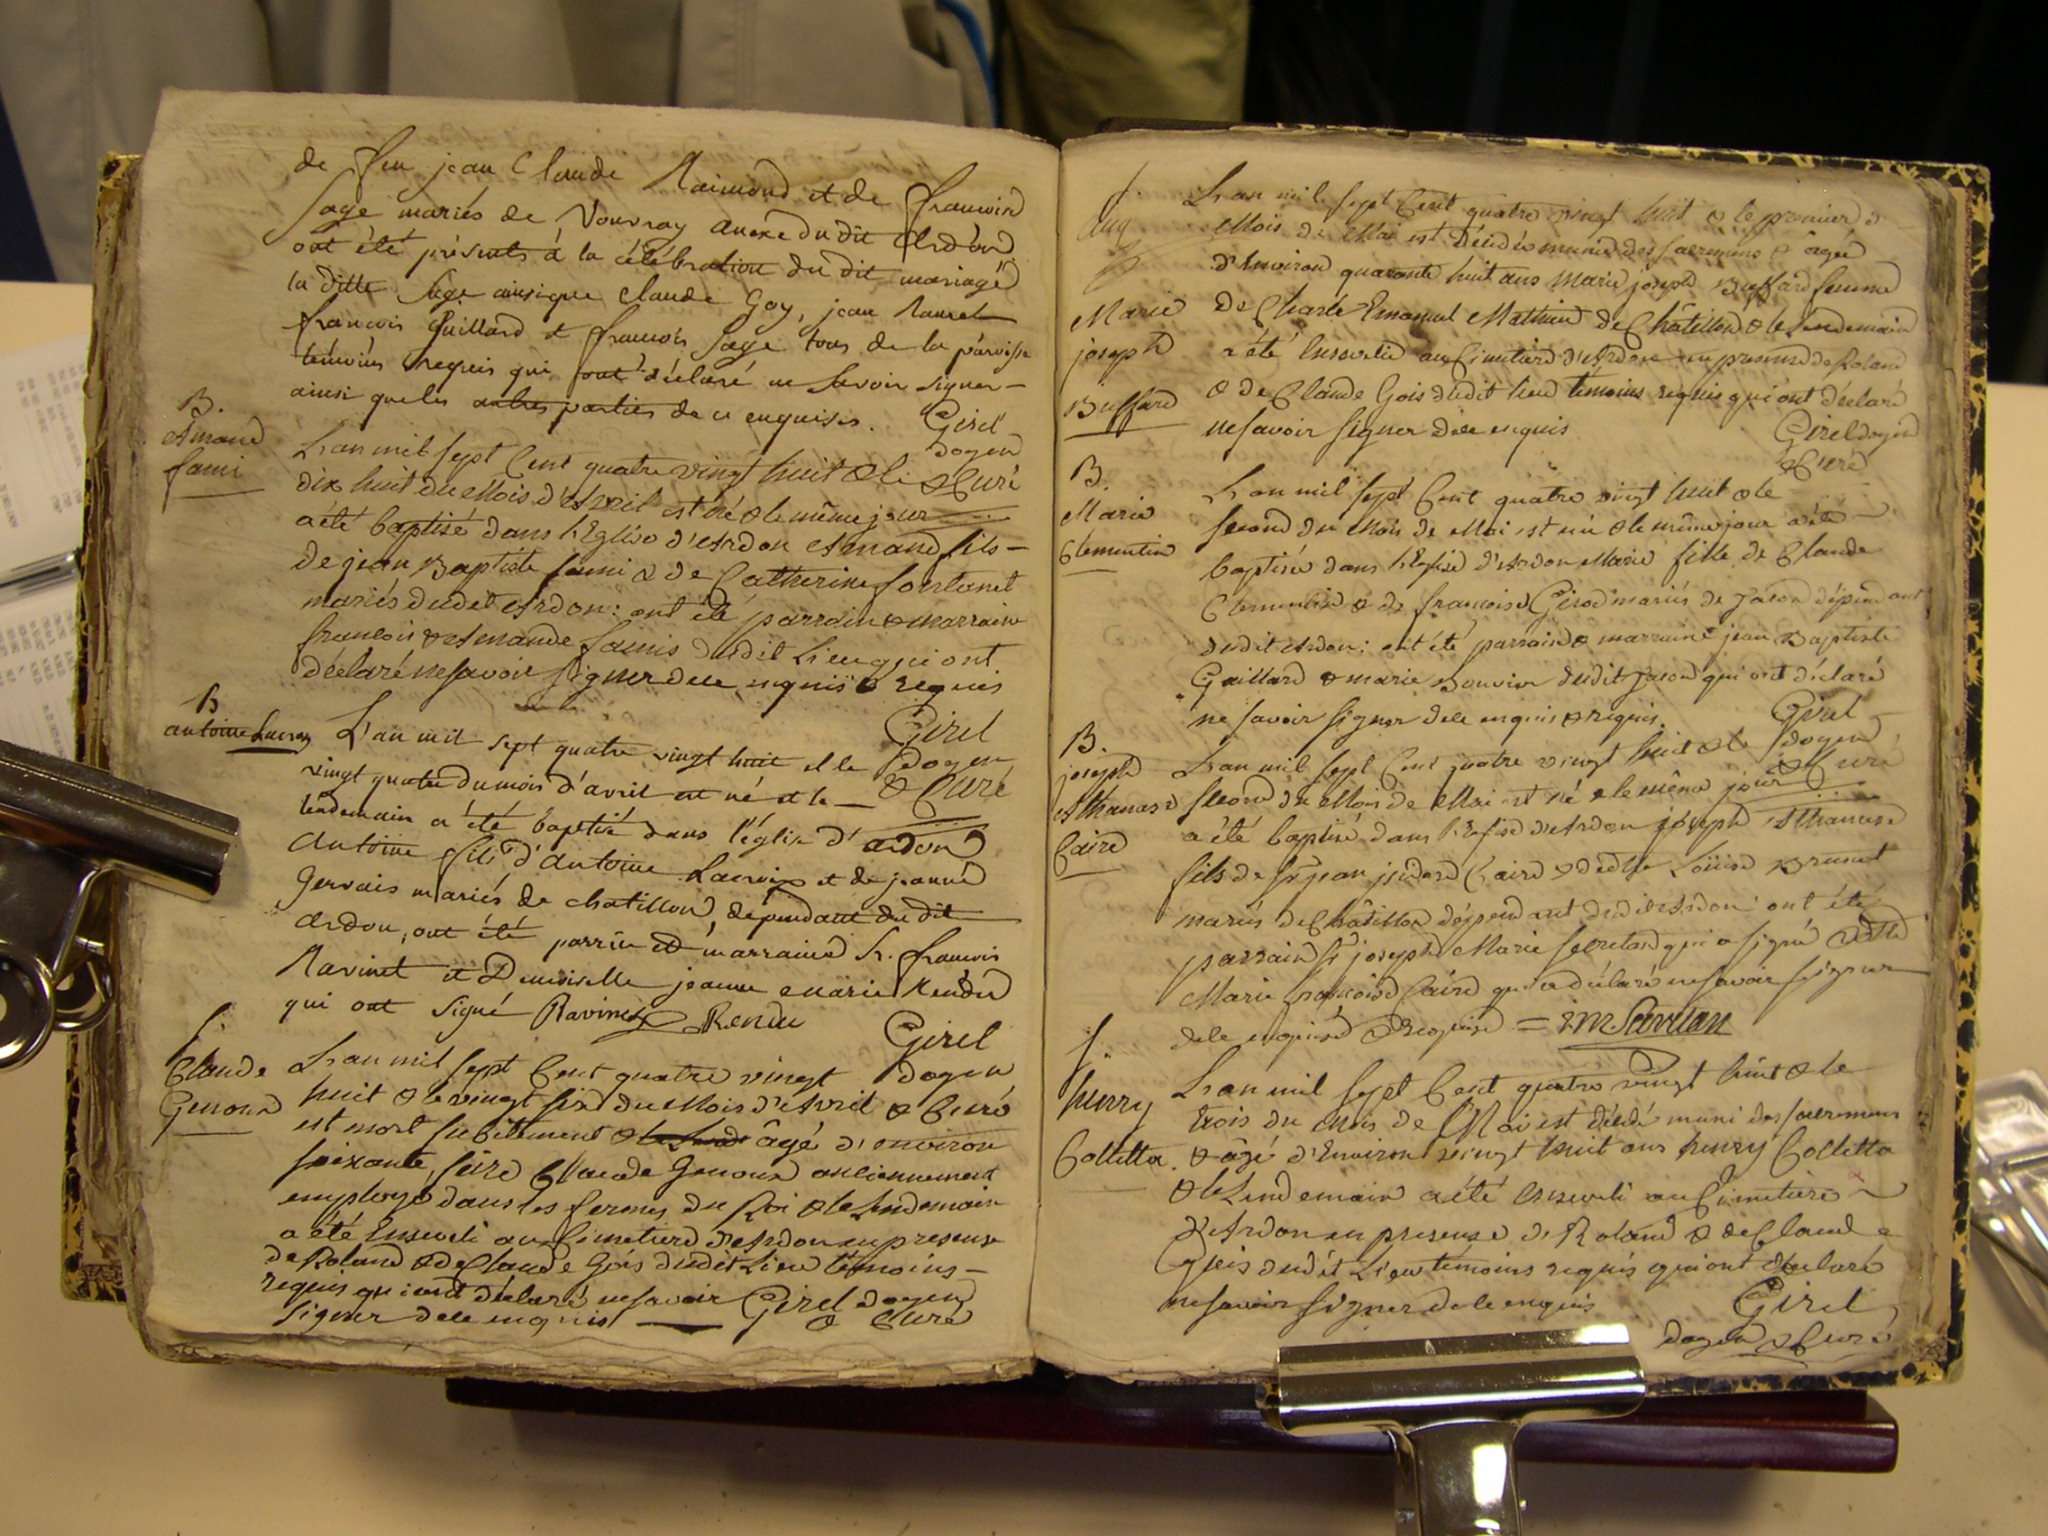 de feu jean Claude Raimond et de françoise
Sage mariés de Vouvray anexe du dit Ardon,
ont été présents à la célébration du dit mariage
la ditte Sage ainsi que Claude Goy, jean
françois Guillard et françois Sage tous de la paroisse
témoins requis qui ont déclaré ne savoir signer
ainsi que les autres parties de ce enquises. Girel
doyen
& Curé
B.
Amand
fami
L'an mil sept Cent quatre vingt huit & le
dix huit du Mois d'Avril est né & le même jour
a été baptisé dans l'Eglise d'Ardon Amand fils
de jean Baptiste fami & de Catherine fontanet
mariés dudit Ardon: ont été parrain & marraine
françois & Amande famis dudit Lieu qui ont
déclaré ne savoir signer de ce enquis & requis
Girel
doyen
& Curé
B
antoine Lacroix
L'an mil sept quatre vingt huit et le
vingt quatre du mois d'avril est né et le
lendemain a été baptisé dans l'église d'ardon
Antoine fils d'Antoine Lacroix et de jeanne
Gervais mariés de chatillon, dépendant du dit
Ardon, ont été parrin et marraine Sr. françois
Ravinet et Demoiselle jeanne Marie Rendu
qui ont signé Ravinet Rendu
Girel
doyen
& Curé
S.
Claude
Genoud
L'an mil sept Cent quatre vingt
huit & le vingt six du Mois d'Avril
est mort subitement & âgé d'environ
soixante, sire Claude Genoud anciennement
employé dans les fermes du Roi & le Lendemain
a été Enseveli au Cimetiere d'Ardon en presence
de Roland & de Claude Gois dudit Lieu témoins
requis qui ont déclaré ne savoir Girel doyen
signer de ce enquis & Curé
S.
Marie
joseph
Buffard
L'an mil sept Cent quatre vingt huit & le premier d
Mois de Mai est décédée munie des sacremens & âgée
d'Environ quarante huit ans Marie joseph Buffard femme
De Charle Emanuel Mathieu de Châtillon & le Lendemain
a été Ensevelie au Cimetière d'Ardon en presence de Roland
& de Claude Gois dudit lieu témoins requis qui ont déclaré
ne savoir signer de ce enquis
Girel doyen
& Curé
B.
Marie
Clementin
L'an mil sept Cent quatre vingt huit & le
second du Mois de Mai est née & le même jour a été
baptisée dans l'Eglise d'Ardon Marie fille de Claude
Clementin & de françoise Girod mariés de Jacon dépendant
dudit Ardon; ont été parrain & marraine jean Baptiste
Gaillard & marie Bouvier dudit Jacon qui ont déclaré
ne savoir signer de ce enquis & requis.
Girel
doyen
& Curé
B.
joseph
Athanase
Caire
L'an mil sept Cent quatre vingt huit & le
second du Mois de Mai est né & le même jour
a été baptisé dans l'Eglise d'Ardon joseph Athanase
fils de Sr jean isidore Caire & de dlle Loüise Brunet
mariés de Châtillon dépendant dudit Ardon: ont été
parrain Sr joseph Marie Secretan qui a signé & dlle
Marie françoise Caire qui a déclaré ne savoir signer
de ce enquise & requise =
S.
henry
Colletta
L'an mil sept Cent quatre vingt huit & le
trois du Mois de Mai est décédé muni des sacremens
& âgé d'Environ vingt huit ans henry Colletta
& le Lendemain a été Enseveli au Cimetiere
d'Ardon en presence de Roland & de Claude
Gois dudit Lieu témoins requis qui ont déclaré
ne savoir signer de ce enquis
Girel
doyen & Curé